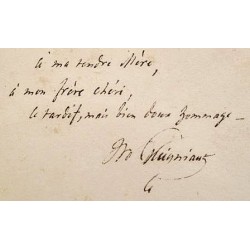 à ma tendre Mère,
à mon frère chéri,
le tardif, mais bien doux hommage —